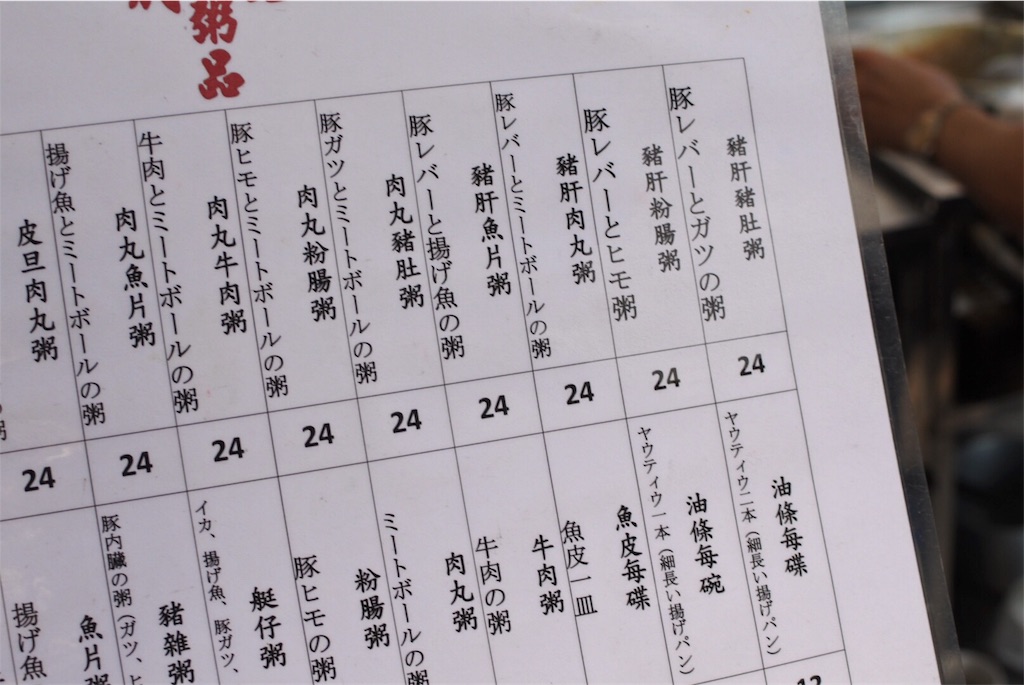 粥品
豬肝豬肚粥
豚レバーとガツの粥
24
豬肝粉腸粥
豚レバーとヒモ粥
24
豬肝肉丸粥
豚レバーとミートボールの粥
24
豬肝魚片粥
豚レバーと揚げ魚の粥
24
肉丸豬肚粥
豚ガツとミートボールの粥
24
肉丸粉腸粥
豚ヒモとミートボールの粥
24
肉丸牛肉粥
牛肉とミートボールの粥
24
肉丸魚片粥
揚げ魚とミートボールの粥
24
皮旦肉丸粥
24
の粥
油條每碟
ヤウティウ二本（細長い揚げパン）
12
油條每碗
ヤウティウ一本（細長い揚げパン）
魚皮每碟
魚皮一皿
牛肉粥
牛肉の粥
肉丸粥
ミートボールの粥
粉腸粥
豚ヒモの粥
艇仔粥
イカ、揚げ魚、豚ガツ、
豬雜粥
豚内臓の粥（ガツ、ヒ
魚片粥
揚げ魚